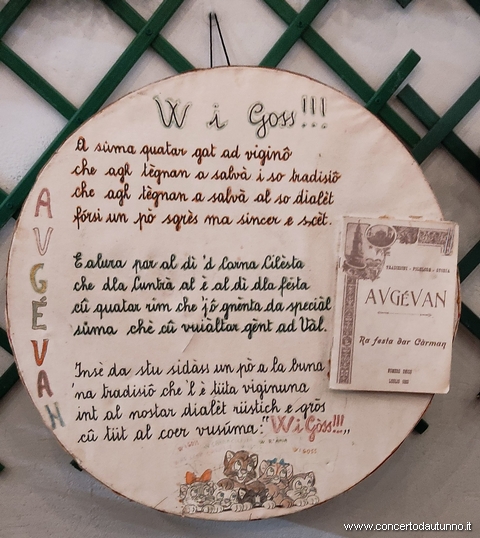 W i Goss!!!
A sùma quatar gat ad viginò
che agh tègnan a salvà i so tradisiò
che agh tègnan a salvà al so dialèt
fórsi un pò sgrès ma sincer e s.cèt.
E alura par al dì 'd Carna Cilèsta
che dla Cuntrà al è al dì dla fèsta
cû quatar rim che 'jò gnènta da speciàl
sùma chè cû vuiàltar gènt ad Vàl.
Insè da stu sidàss un pò a la buna
'na tradisiò che 'l è tüta viginuna
int al nostar dialèt rüstich e gròs
cû tüt al coer vusùma: "W i Gòss!!!„
W I GOSS
AVGÉVAN
TRADIZIONI - FOLKLORE - STORIA
AVGÉVAN
Ra festa dar Cârman
NUMERO UNICO
LUGLIO
www.concertodautunno.it